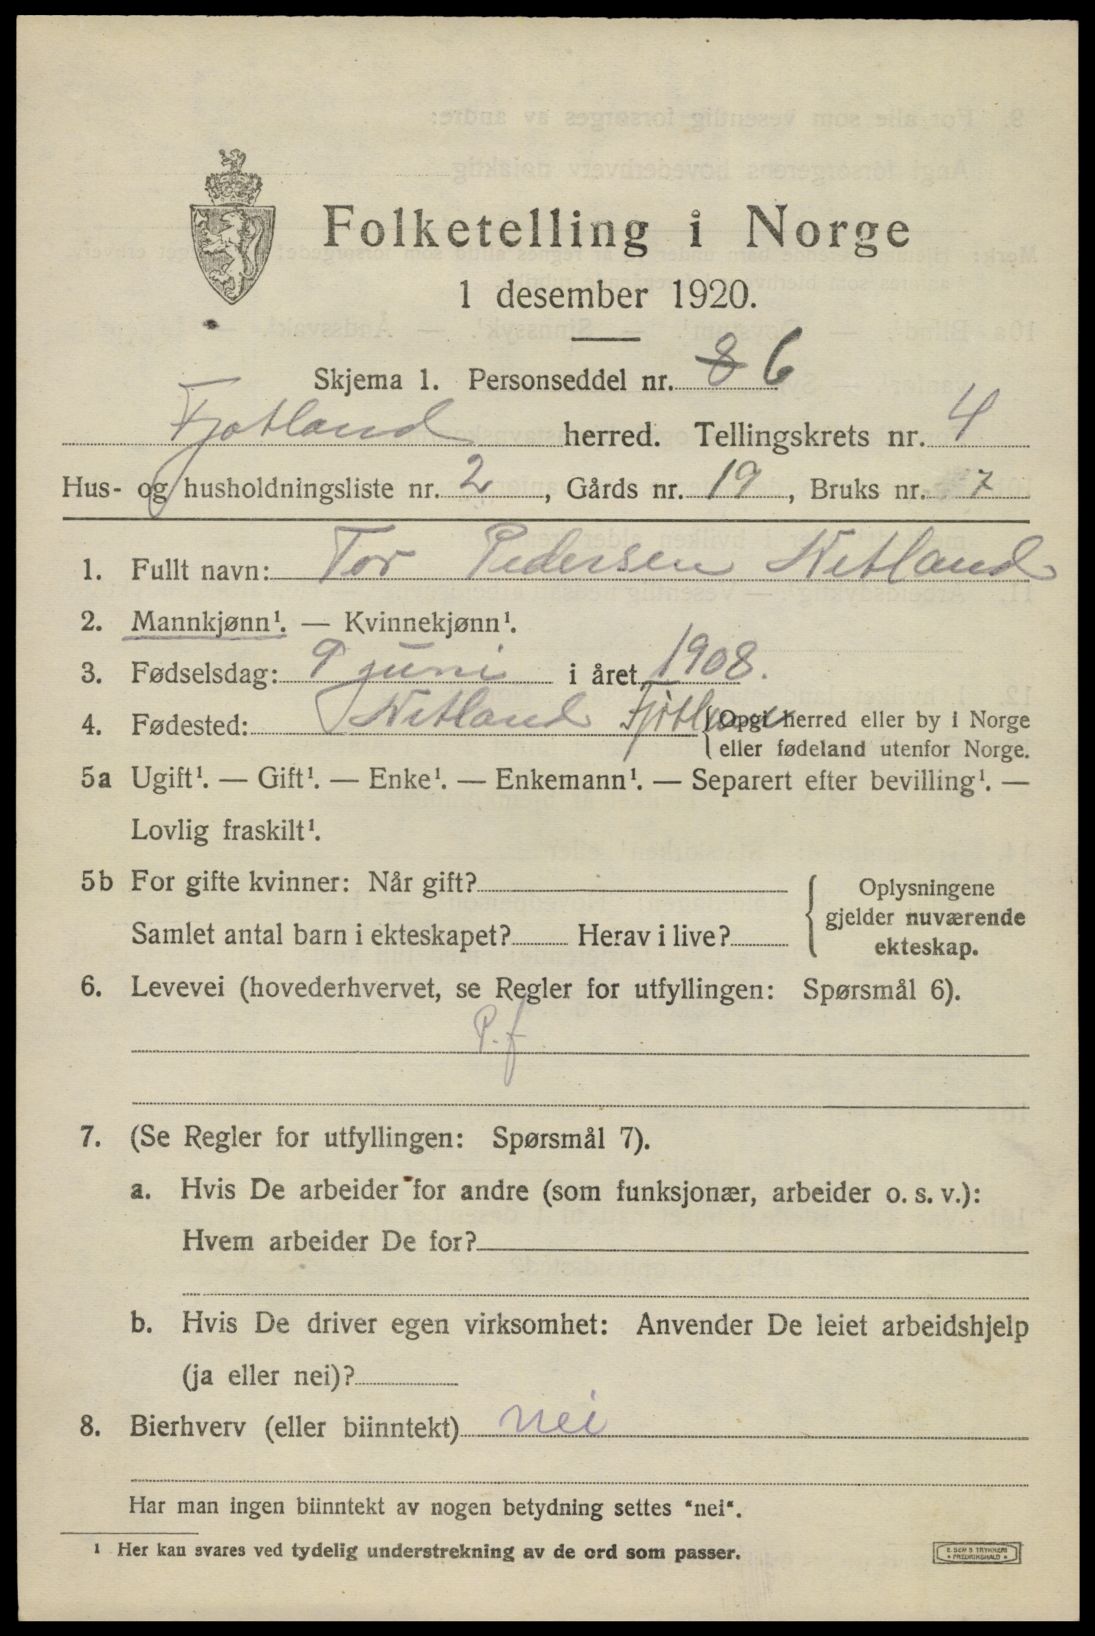 Folketelling i Norge
1 desember 1920.
Skjema 1. Personseddel nr. 8 6
Fjotland herred. Tellingskrets nr. 4
Hus- og husholdningsliste nr. 2, Gårds nr. 19, Bruks nr. 7
1. Fullt navn: Tor Pedersen Netland
2. Mannkjønn¹. — Kvinnekjønn¹.
3. Fødselsdag: 9 juni i året 1908.
4. Fødested: Netland Fjotland {Opgi herred eller by i Norge
eller fødeland utenfor Norge.
5a Ugift¹. — Gift¹. — Enke¹. — Enkemann¹. — Separert efter bevilling¹. —
Lovlig fraskilt¹.
5b For gifte kvinner: Når gift?
Samlet antal barn i ekteskapet? Herav i live?
{ Oplysningene
gjelder nuværende
ekteskap.
6. Levevei (hovederhvervet, se Regler for utfyllingen: Spørsmål 6).
P. f
7. (Se Regler for utfyllingen: Spørsmål 7).
a. Hvis De arbeider for andre (som funksjonær, arbeider o. s. v.):
Hvem arbeider De for?
b. Hvis De driver egen virksomhet: Anvender De leiet arbeidshjelp
(ja eller nei)?
8. Bierhverv (eller biinntekt) nei
Har man ingen biinntekt av nogen betydning settes "nei".
¹ Her kan svares ved tydelig understrekning av de ord som passer.
E. SEM'S TRYKKERI
FREDRIKSHALD